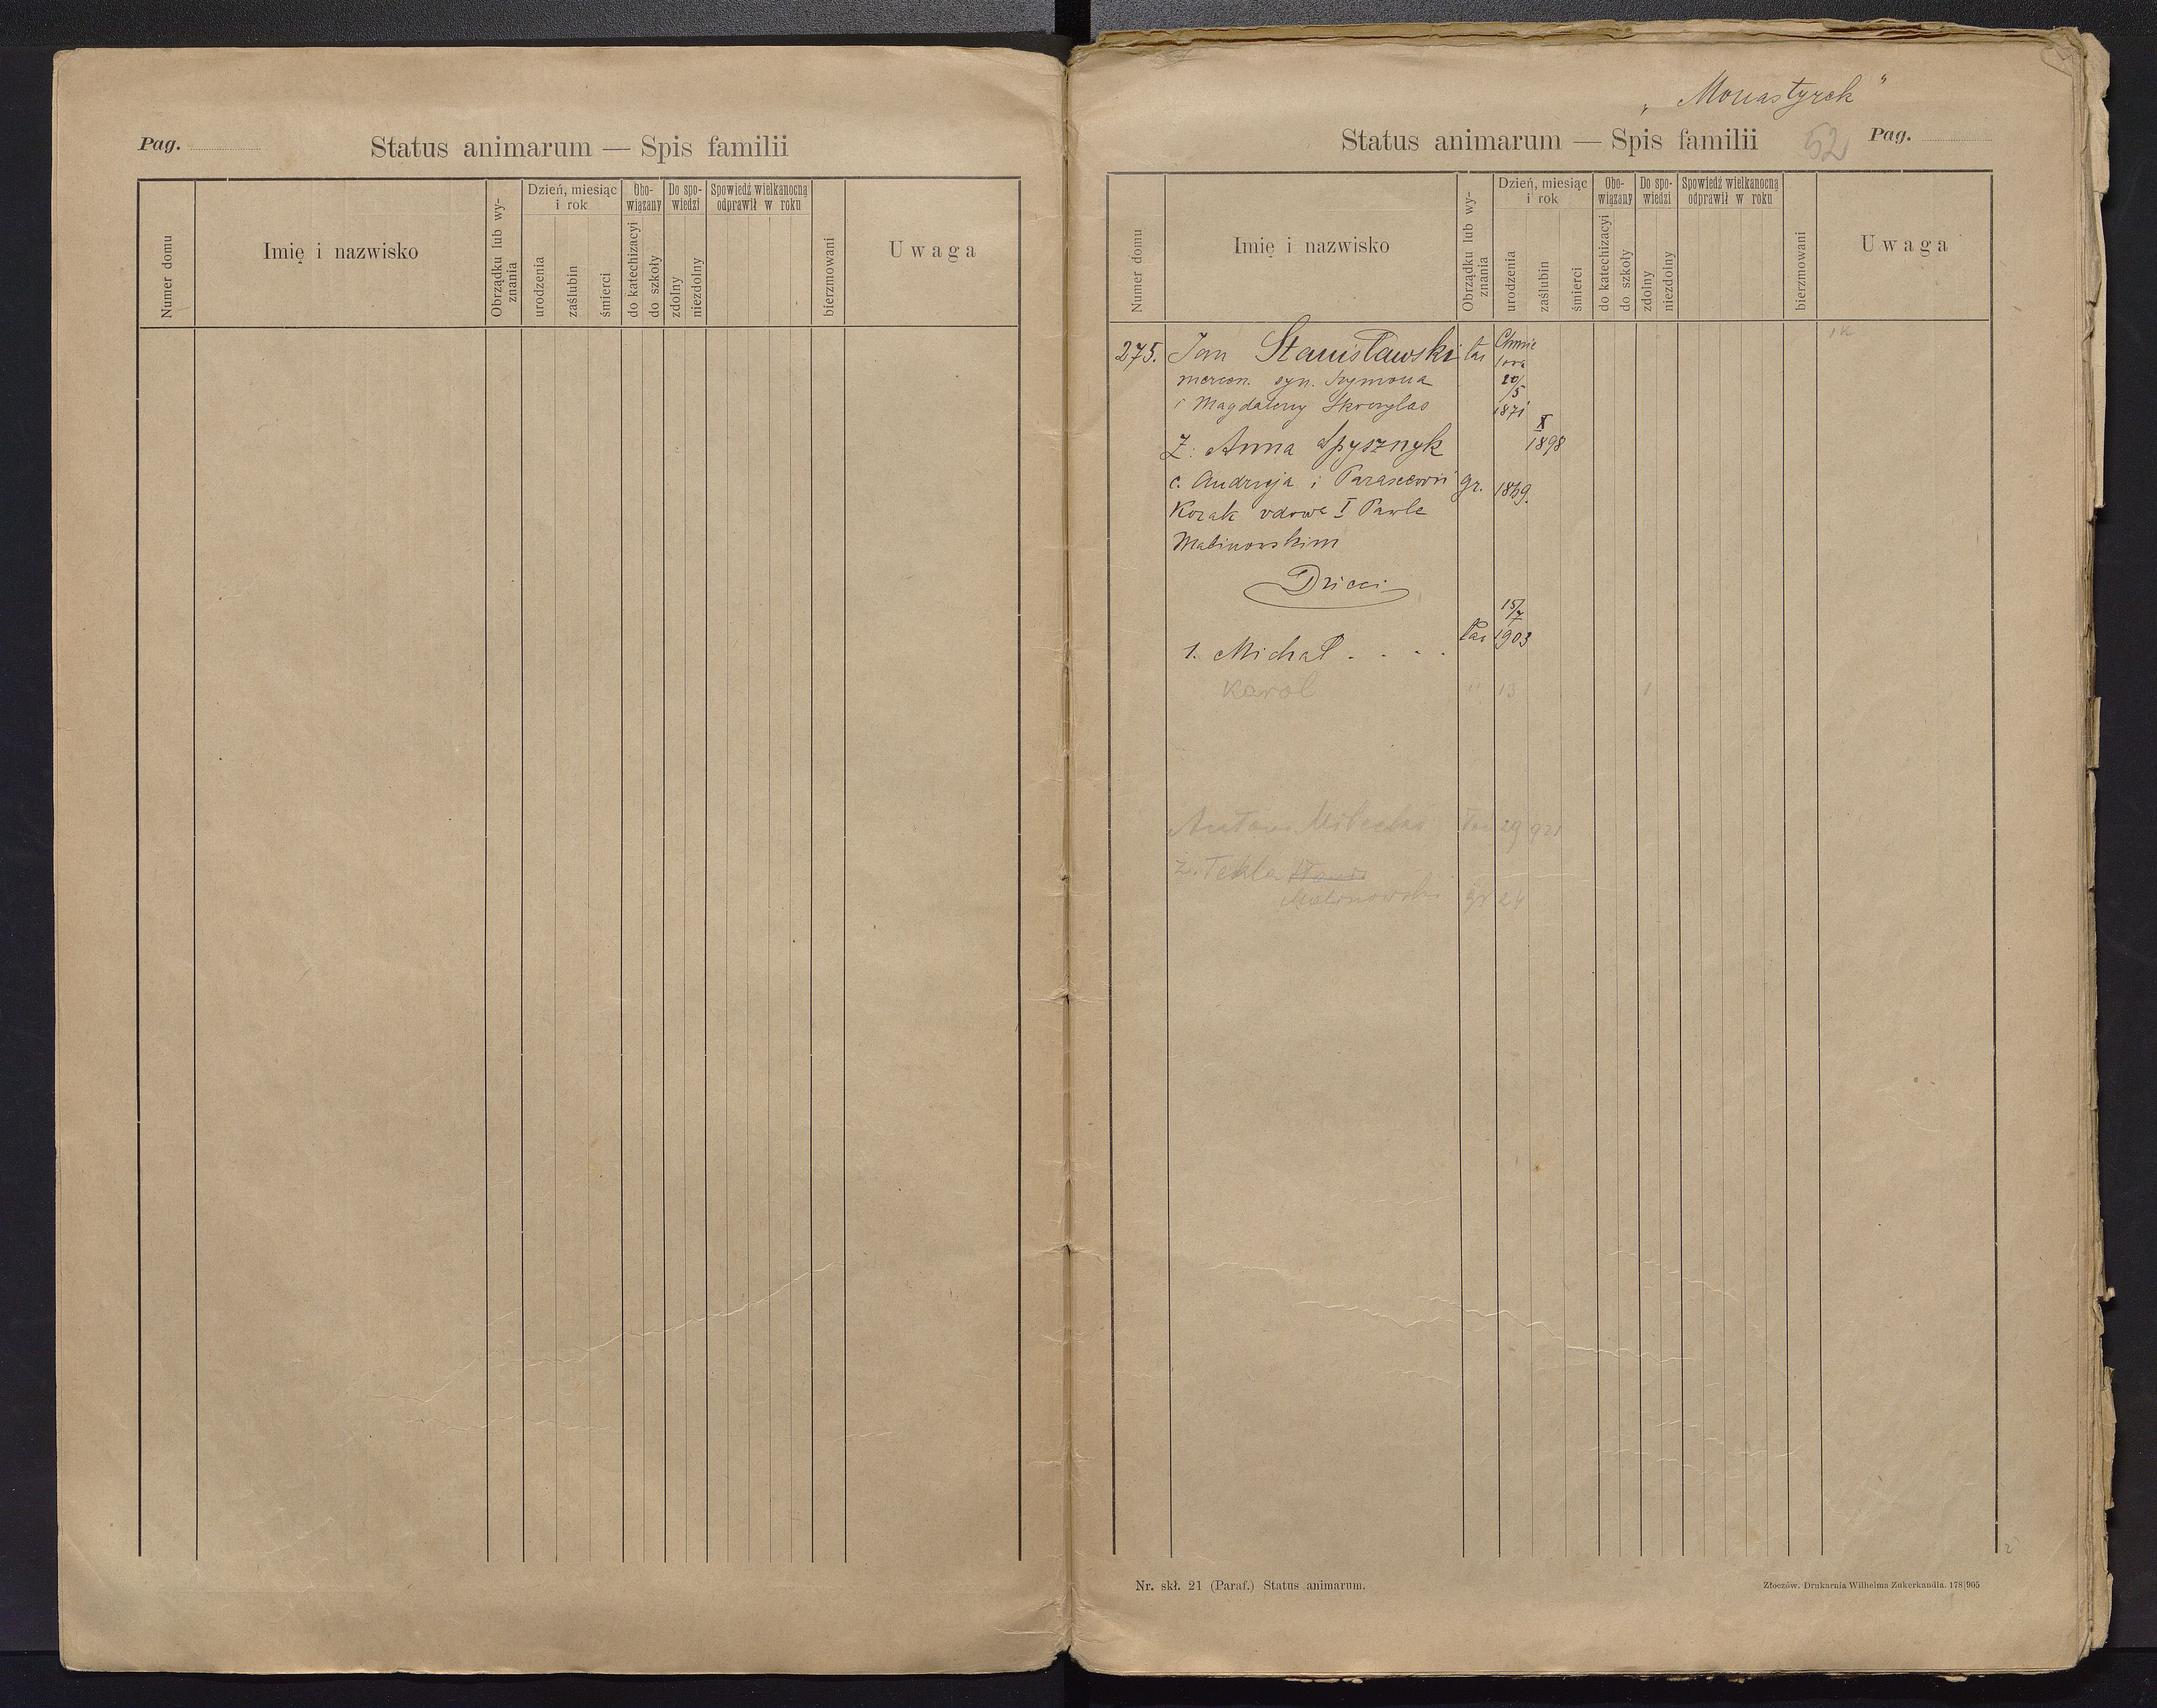 Pag.
Status animarum — Spis familii
Numer domu
Imię i nazwisko
Obrządku lub wy-
znania
Dzień, miesiąc
i rok
urodzenia
zaślubin
śmierci
Obo-
wiązany
do katechizacyi
do szkoły
Do spo-
wiedzi
zdolny
niezdolny
Spowiedź wielkanocną
odprawił w roku
bierzmowani
Uwaga
„Monastyrek"
Status animarum — Spis familii
52
Pag.
Numer domu
Imię i nazwisko
Obrządku lub wy-
znania
Dzień, miesiąc
i rok
urodzenia
zaślubin
śmierci
Obo-
wiązany
do katechizacyi
do szkoły
Do spo-
wiedzi
zdolny
niezdolny
Spowiedź wielkanocną
odprawił w roku
bierzmowani
Uwaga
275. Jan Stanisławski łac
syn. Szymona 20/5
i Magdaleny 1871
X
Ż. Anna Spysznyk 1898
c. Andrzeja i Parascewii gr. 1869.
Kozak I Pawle
Malinowskim
Dzieci
15/7
1. Michał . . . . łac 1903
Karol " 13 1
29
Ż. Tekla
Malinowski gr 24
Nr. skł. 21 (Paraf.) Status animarum.
Złoczów. Drukarnia Wilhelma Zukerkandla. 178|905